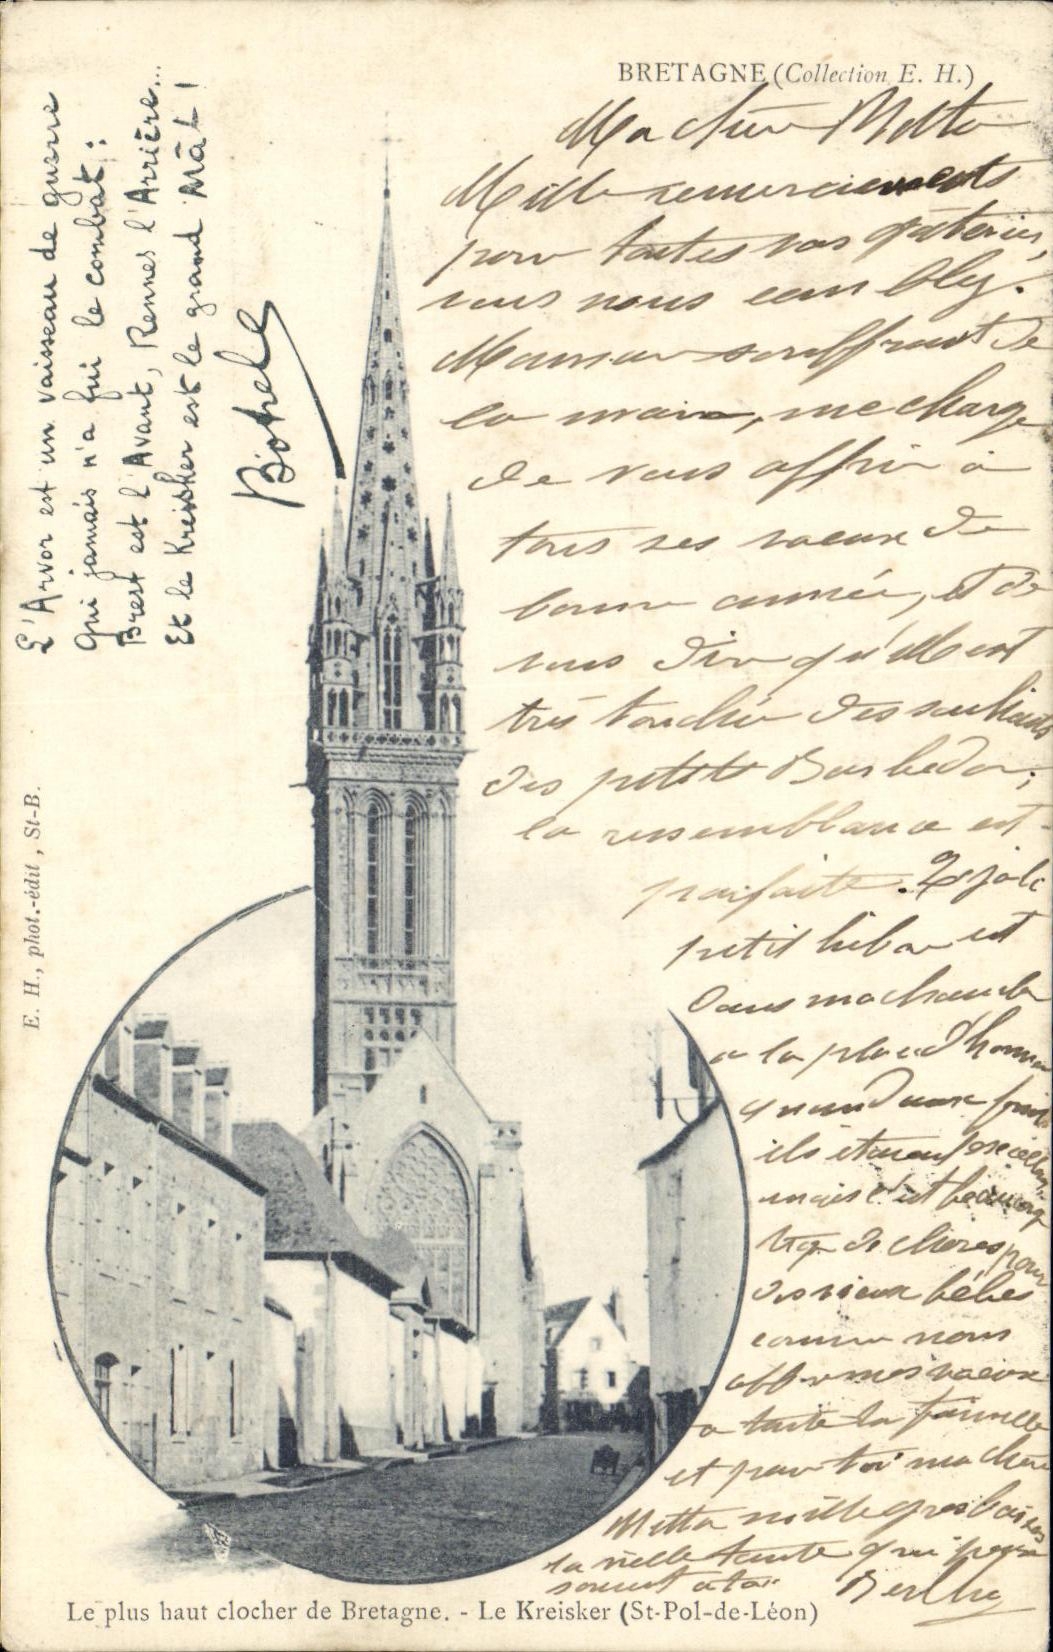 BRETAGNE (Collection E. H.)
L'Arvor est un vaisseau de guerre
Qui jamais n'a fui le combat :
Brest est l'Avant, Rennes l'Arrière...
Et le Kreisker est le grand Mât !
Botrel
Ma chère Metta
Mille remerciements
pour toutes vos gâteries,
vous nous comblez.
Maman souffrant de
la main, me charge
de vous offrir à
tous ses vœux de
bonne année, et de
vous dire qu'elle est
très touchée des souhaits
des petits
la ressemblance est
parfaite. Le joli
petit hibou est
dans ma chambre
à la place d'honneur
quand aux
ils étaient
mais c'est beaucoup
trop de choses pour
des vieux bébés
comme nous
offre mes vœux
à toute la famille
et pour toi ma chère
Metta mille gros baisers
la vieille tante qui pense
souvent à toi
Berthe
E. H., phot.-édit , St-B.
Le plus haut clocher de Bretagne. - Le Kreisker (St-Pol-de-Léon)